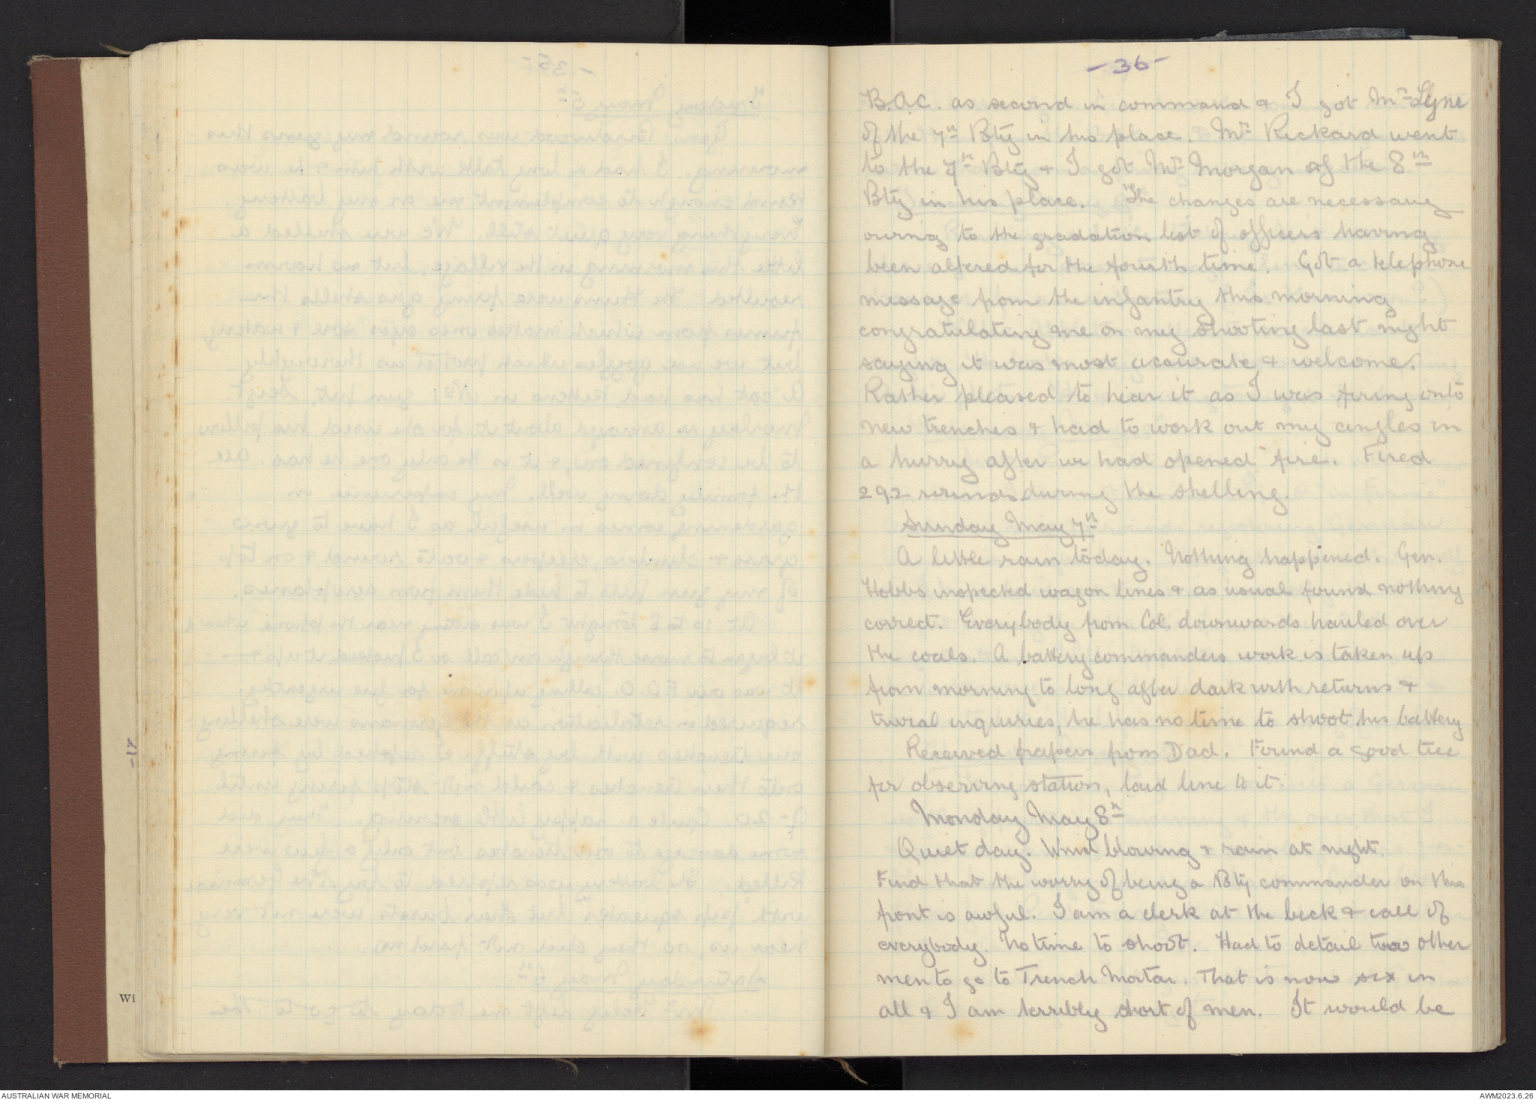 - 36 -
B.A.C. as second in command & I got Mr Lyne
of the 7th Bty in his place. Mr Rickard went
to the 7th Bty & I got Mr Morgan of the 8th
Bty in his place. The changes are necessary
owing to the gradation list of officers having
been altered for the fourth time. Got a telephone
message from the infantry this morning
congratulating me on my shooting last night
saying it was most accurate & welcome.
Rather pleased to hear it as I was firing onto
new trenches & had to work out my angles in
a hurry after we had opened fire. Fired
292 rounds during the shelling.
Sunday May 7th
A little rain today. Nothing happened. Gen.
Hobbs inspected wagon lines & as usual found nothing
correct. Everybody from Col. downwards hauled over
the coals. A battery commanders work is taken up
from morning to long after dark with returns &
trivial inquiries, he has no time to shoot his battery
Received papers from Dad. Found a good tree
for observing station, laid line to it.
Monday May 8th
Quiet day. Wind blowing & rain at night.
Find that the worry of being a Bty commander on this
front is awful. I am a clerk at the beck & call of
everybody. No time to shoot. Had to detail two other
men to go to Trench Mortar. That is now six in
all & I am terribly short of men. It would be
Wi
AUSTRALIAN WAR MEMORIAL
AWM2023.6.26